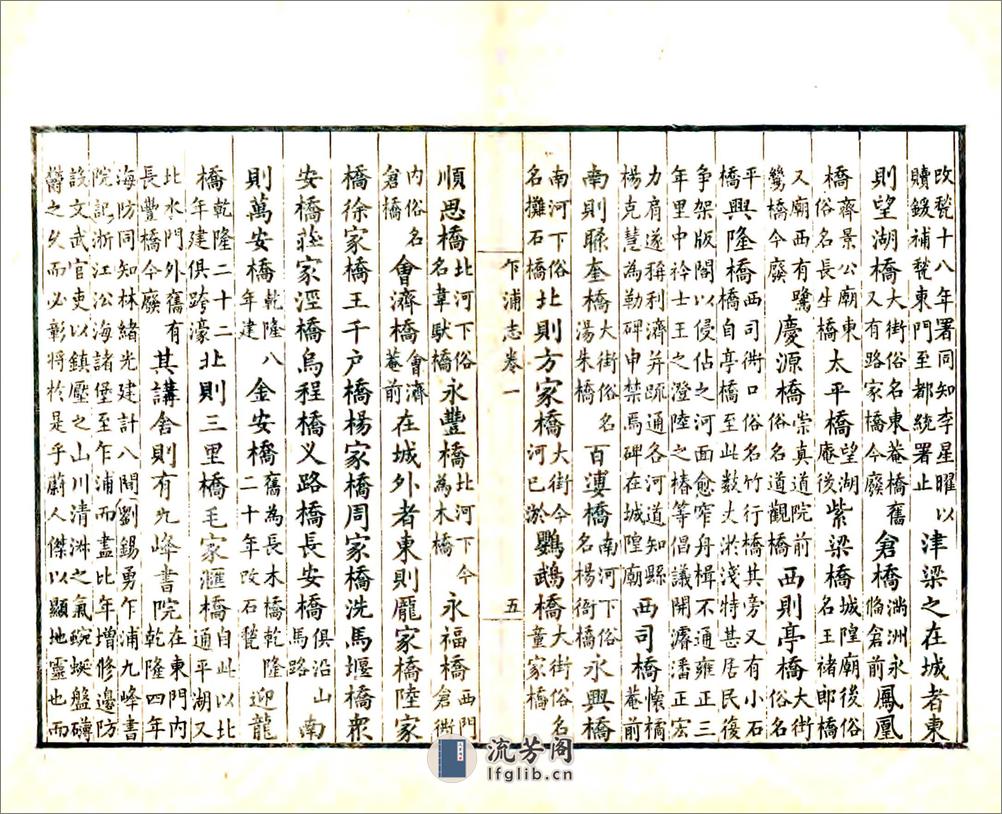 改甃十八年署同知李星曜以贖鍰補甃東門至都統署止津梁之在城者東
則望湖橋大街俗名東菴橋舊又有路家橋今廢倉橋滿洲永倉前鳳凰
橋齊景公廟東俗名長生橋太平橋望湖庵後紫梁橋城隍廟後俗名王褚郎橋
又廟西有鷺鷥橋今廢慶源橋崇真道院前俗名道觀橋西則亭橋大街俗名
平橋興隆橋西司衙口俗名竹行橋其旁又有小石橋自亭橋至此數丈淤淺特甚居民復
争架版閣以侵佔之河面愈窄舟楫不通雍正三年里中衿士王之澄陸之椿等倡議開濬潘正宏
力肩遂稱利濟并疏通各河道知縣楊克慧為勒碑申禁焉碑在城隍廟西司橋懷橘菴前
南則聯奎橋大街俗名湯朱橋百蔞橋南河下俗名楊衙橋永興橋
南河下俗名攤石橋北則方家橋大街今河已淤鸚鵡橋大街俗名童家橋
乍浦志卷一 五
順思橋北河下俗名韋馱橋永豐橋北河下今為木橋永福橋西門倉衙
内俗名倉橋會濟橋會濟菴前在城外者東則龎家橋陸家
橋徐家橋王千户橋楊家橋周家橋洗馬堰橋衆
安橋莊家涇橋烏程橋义路橋長安橋俱沿山馬路南
則萬安橋乾隆八年建金安橋舊為長木橋乾隆二十年改石甃迎龍
橋乾隆二十二年建俱跨濠北則三里橋毛家滙橋自此以北通平湖又
北水門外舊有長豐橋今廢其講舍則有九峰書院在東門内乾隆四年
海防同知林緒光建計八間劉錫勇乍浦九峰書院記浙江㳂海諸堡至乍浦而盡比年增修邊防
設文武官吏以鎮壓之山川清淑之氣蜿蜒盤礴鬱之久而必彰將於是乎蔚人傑以顯地靈也而
流芳阁
lfglib.cn